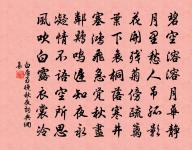 碧空溶溶月華靜
月里愁人吊孤影
花開殘菊傍疏籬
葉下衰桐落寒井
塞鴻飛急覺秋盡
鄰雞鳴遲知夜永
凝情不語空所思
風吹白露衣裳冷
白居易晚秋夜